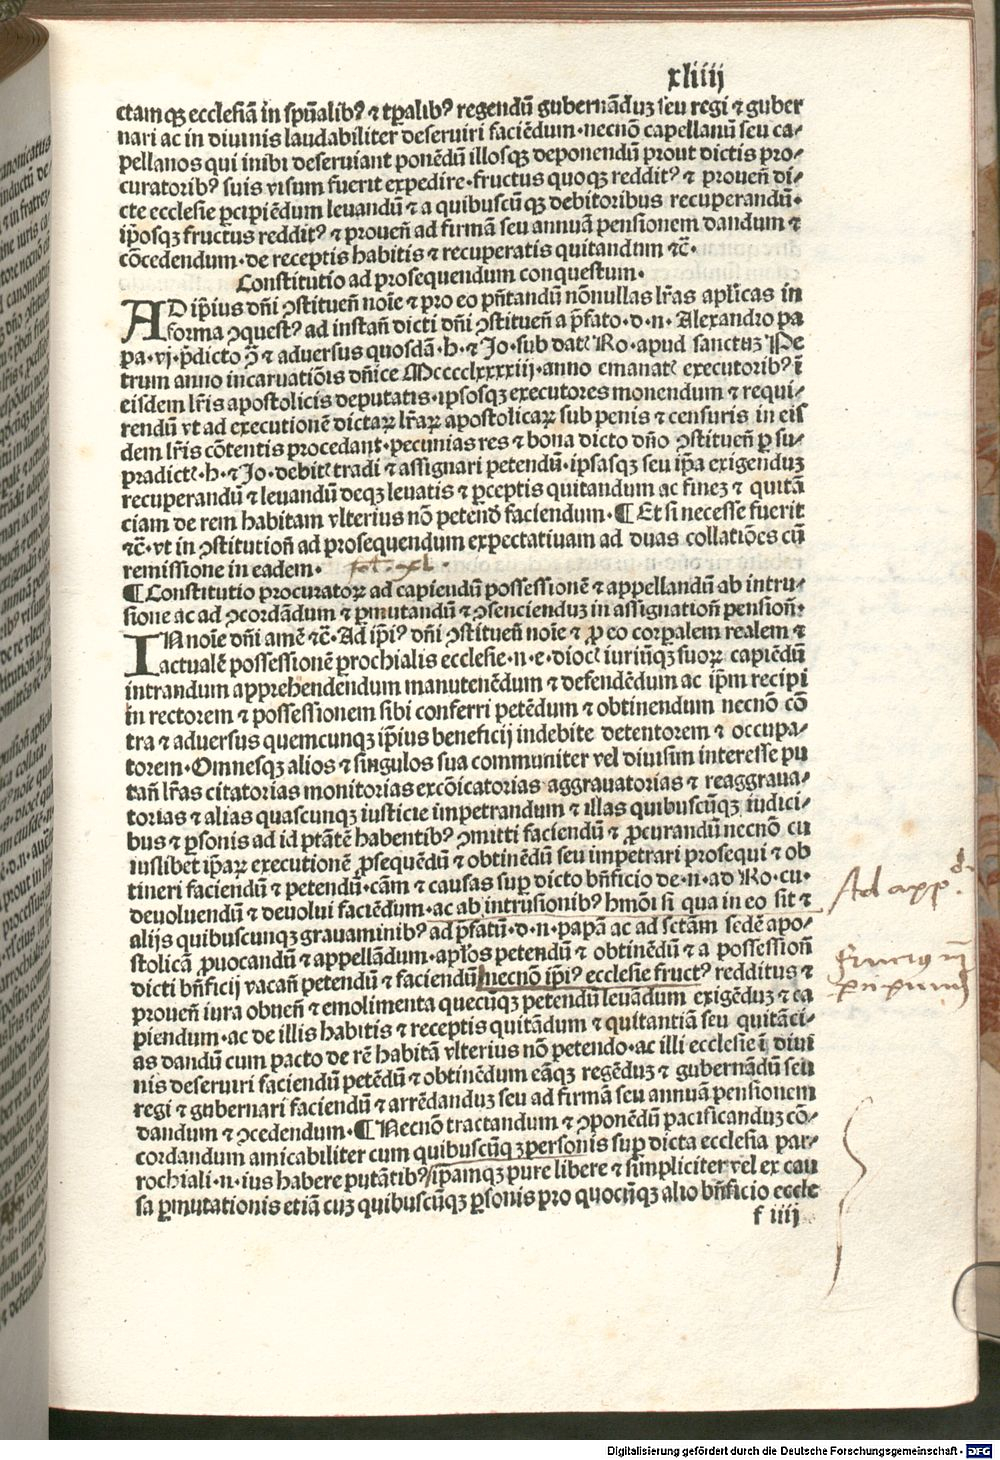 xliiij
ctamqꝫ ecclesiā in spūalibꝰ ⁊ tꝑalibꝰ regendū gubernāduꝫ seu regi ⁊ guber
nari ac in diuinis laudabiliter deseruiri faciēdum·necnō capellanū seu ca⸗
pellanos qui inibi deseruiant ponēdū illosqꝫ deponendū prout dictis pro⸗
curatoribꝰ suis visum fuerit expedire·fructus quoqꝫ redditꝰ ⁊ prouen̄ di⸗
cte ecclesie ꝑcipiēdum leuandū ⁊ a quibuscūqꝫ debitoribus recuperandū·
ip̄osqꝫ fructus redditꝰ ⁊ prouen̄ ad firmā seu annuā pensionem dandum ⁊
cōcedendum·de receptis habitis ⁊ recuperatis quitandum ⁊c̄·
Constitutio ad prosequendum conquestum·
AD ip̄ius dn̄i ꝯstituen̄ noīe ⁊ pro eo pn̄tandū nōnullas lr̄as apl'icas in
forma ꝯquestꝰ ad instan̄ dicti dn̄i ꝯstituen̄ a p̄fato·d·n·Alexandro pa
pa·vj·p̄dicto ꝯ̄ ⁊ aduersus quosdā·h·⁊ Jo·sub datꝭ Ro·apud sanctuꝫ Pe
trum anno incarnatiōis dn̄ice Mcccclxxxxiij·anno emanatꝭ executoribꝰ ī
eisdem lr̄is apostolicis deputatis·ipsosqꝫ executores monendum ⁊ requi⸗
rendū vt ad executionē dictaꝝ lr̄aꝝ apostolicaꝝ sub penis ⁊ censuris in eis
dem lr̄is cōtentis procedant·pecunias res ⁊ bona dicto dn̄o ꝯstituen̄ ꝑ su⸗
pradictꝭ·h·⁊ Jo·debitꝭ tradi ⁊ assignari petendū·ipsasqꝫ seu ip̄a exigenduꝫ
recuperandū ⁊ leuandū deqꝫ leuatis ⁊ ꝑceptis quitandum ac fineꝫ ⁊ quitā
ciam de rem habitam vlterius nō petendo faciendum·¶Et si necesse fuerit
⁊c̄·vt in ꝯstitution̄ ad prosequendum expectatiuam ad duas collatiōes cū
remissione in eadem· fol. xl.
¶Constitutio procuratoꝝ ad capiendū possessionē ⁊ appellandū ab intru⸗
sione ac ad ꝯcordādum ⁊ ꝑmutandū ⁊ ꝯsenciendꝫ in assignation̄ pension̄:
IN noīe dn̄i amē ⁊c̄·Ad ip̄iꝰ dn̄i ꝯstituen̄ noīe ⁊ ꝓ eo corꝑalem realem ⁊
actualē possessionē ꝑrochialis ecclesie·n·e·diocꝭ iuriūqꝫ suoꝝ capiēdū
intrandum apprehendendum manutenēdum ⁊ defendēdum ac ip̄m recipi
in rectorem ⁊ possessionem sibi conferri petēdum ⁊ obtinendum necnō cō
tra ⁊ aduersus quemcunqꝫ ip̄ius beneficij indebite detentorem ⁊ occupa⸗
torem·Omnesqꝫ alios ⁊ singulos sua communiter vel diuisim interesse pu
tan̄ lr̄as citatorias monitorias excōicatorias aggrauatorias ⁊ reaggraua⸗
torias ⁊ alias quascunqꝫ iusticie impetrandum ⁊ illas quibuscūqꝫ iudici⸗
bus ⁊ ꝑsonis ad id ptātē habentibꝰ ꝯmitti faciendū ⁊ ꝓcurandū necnō cu
iuslibet ip̄aꝝ executionē ꝓsequēdū ⁊ obtinēdū seu impetrari prosequi ⁊ ob
tineri faciendū ⁊ petendū·cām ⁊ causas suꝑ dicto bn̄ficio de·n·ad Ro·cu·
deuoluendū ⁊ deuolui faciēdum·ac ab intrusionibꝰ hmōi si qua in eo sit ⁊
alijs quibuscunqꝫ grauaminibꝰ ad p̄fatū·d·n·papā ac ad sctām sedē apo⸗
stolicā ꝓuocandū ⁊ appellādum·apl'os petendū ⁊ obtinēdū ⁊ a possession̄
dicti bn̄ficij vacan̄ petendū ⁊ faciendū necnō ip̄iꝰ ecclesie fructꝰ redditus ⁊
prouen̄ iura obuen̄ ⁊ emolimenta quecūqꝫ petendū leuādum exigēduꝫ ⁊ ca
piendum·ac de illis habitis ⁊ receptis quitādum ⁊ quitantiā seu quitāci⸗
as dandū cum pacto de rē habitā vlterius nō petendo·ac illi ecclesie ī diui
nis deseruiri faciendū petēdū ⁊ obtinēdum eāqꝫ regēduꝫ ⁊ gubernādū seu
regi ⁊ gubernari faciendū ⁊ arrēdanduꝫ seu ad firmā seu annuā pensionem
dandum ⁊ ꝯcedendum·¶Necnō tractandum ⁊ ꝯponēdū pacificanduꝫ cō⸗
cordandum amicabiliter cum quibuscūqꝫ personis suꝑ dicta ecclesia par⸗
rochiali·n·ius habere putātibꝰ ip̄amqꝫ pure libere ⁊ simpliciter vel ex cau
sa ꝑmutationis etiā cuꝫ quibuscūqꝫ ꝑsonis pro quocūqꝫ alio bn̄ficio eccle
f iiij
Ad app
Digitalisierung gefördert durch die Deutsche Forschungsgemeinschaft · DFG